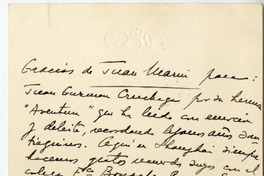 Gracias de Juan Marín para:
Juan Guzmán Cruchaga por su hermoso
"Aventura" que he leído con emoción
y deleite, recordando lejanos años san-
tiaguinos. Aquí en Shanghai siempre
hacemos gratos recuerdos suyos con el
colega